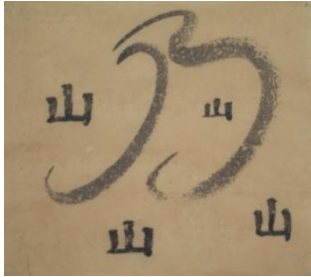 乃
山 山
山 山